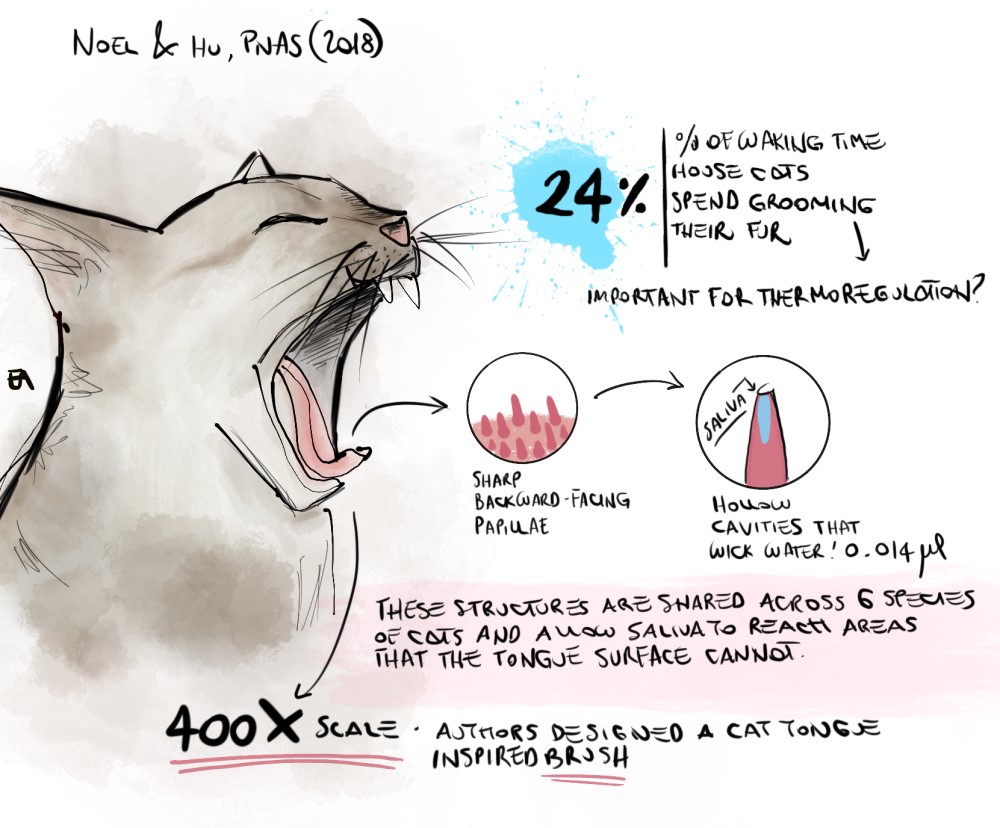 NOEL & HU, PNAS (2018)
24%
% OF WAKING TIME
HOUSE CATS
SPEND GROOMING
THEIR FUR
IMPORTANT FOR THERMOREGULATION?
SALIVA
SHARP
BACKWARD-FACING
PAPILLAE
HOLLOW
CAVITIES THAT
WICK WATER! 0.014 µl
THESE STRUCTURES ARE SHARED ACROSS 6 SPECIES
OF CATS AND ALLOW SALIVA TO REACH AREAS
THAT THE TONGUE SURFACE CANNOT.
400X SCALE · AUTHORS DESIGNED A CAT TONGUE
INSPIRED BRUSH